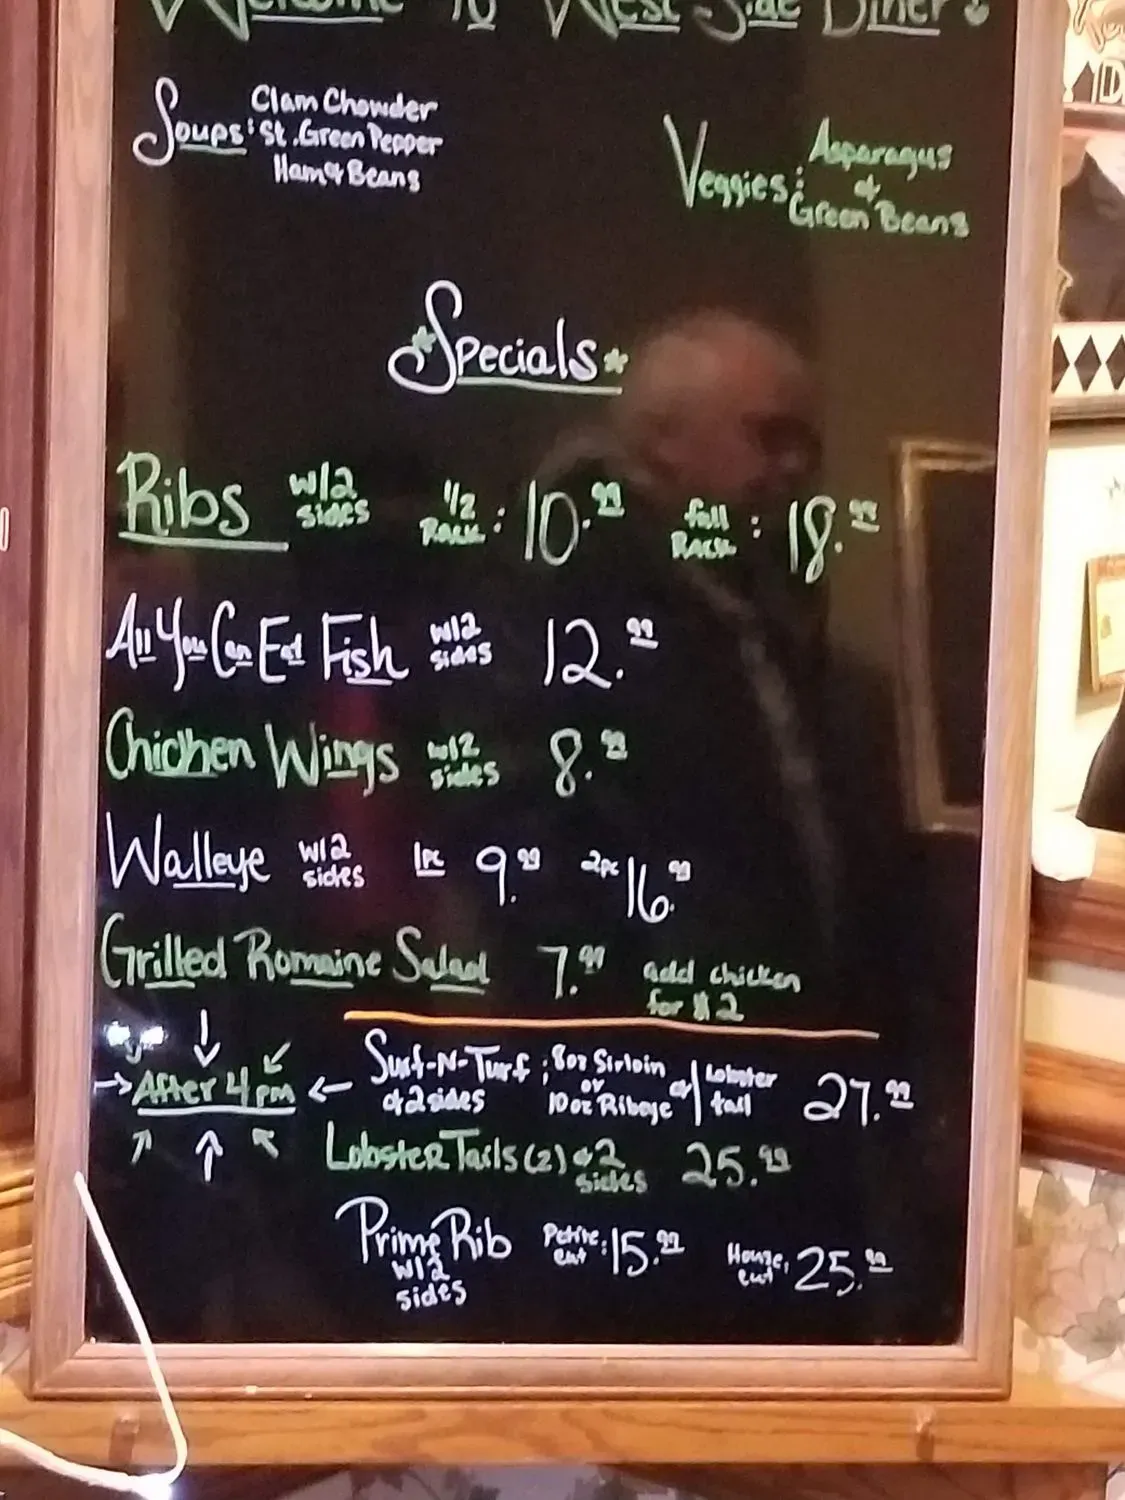 Welcome To West Side Diner
Soups: Clam Chowder
St. Green Pepper
Ham & Beans
Veggies: Asparagus
&
Green Beans
*Specials*
Ribs w/2 sides 1/2 Rack: 10.99 full Rack: 18.99
All You Can Eat Fish w/2 sides 12.99
Chicken Wings w/2 sides 8.99
Walleye w/2 sides 1pc 9.99 2pc 16.99
Grilled Romaine Salad 7.99 add chicken for $2
→ After 4pm ←
Surf-N-Turf & 2 sides : 8oz Sirloin or 10oz Ribeye w/ Lobster tail 27.99
Lobster Tails (2) & 2 sides 25.99
Prime Rib w/2 sides Petite cut: 15.99 House cut: 25.99